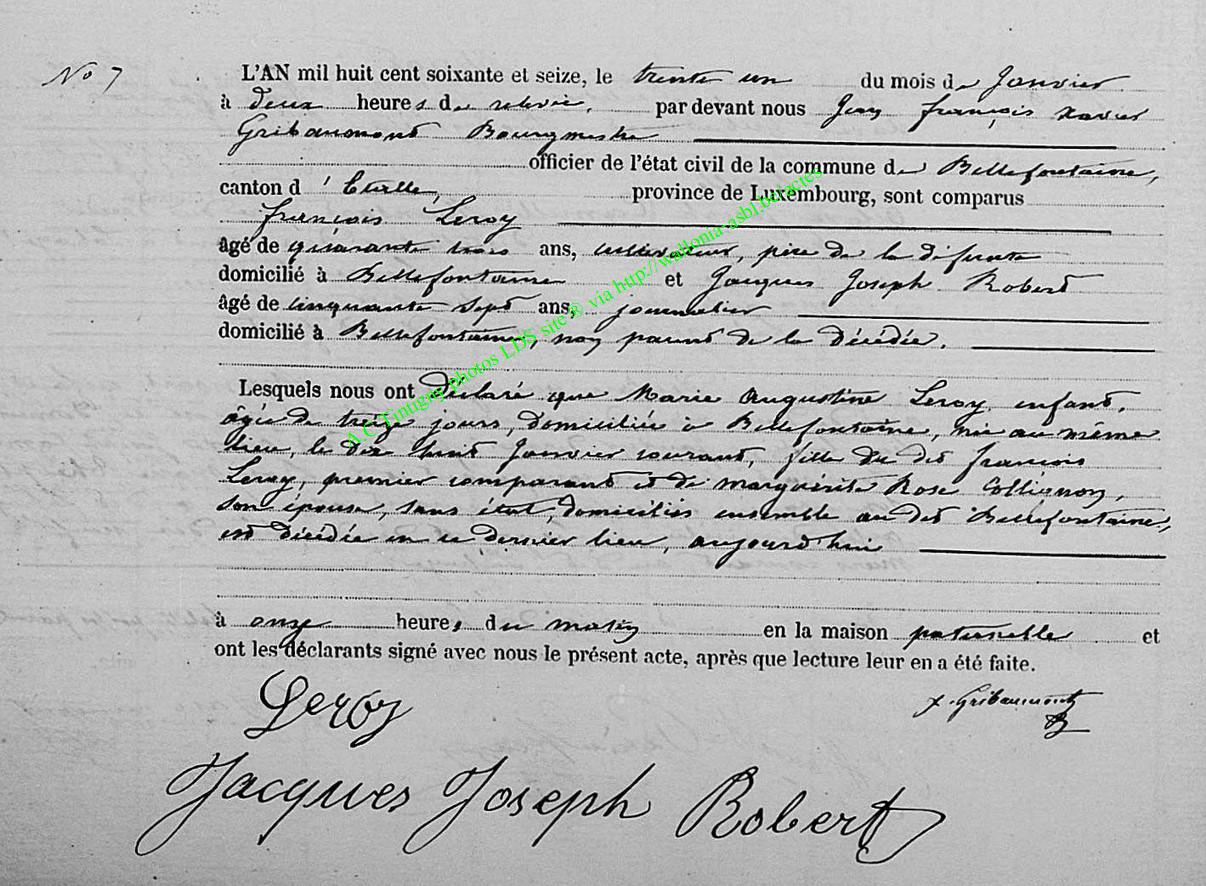 No 7
L'AN mil huit cent soixante et seize, le trente un du mois de Janvier
à deux heures de relevée, par devant nous Jean françois xavier
Gribaumont Bourgmestre
officier de l'état civil de la commune de Bellefontaine,
canton d'Etalle, province de Luxembourg, sont comparus
françois Leroy
âgé de quarante trois ans, cultivateur, père de la défunte
domicilié à Bellefontaine et Jacques Joseph Robert
âgé de cinquante sept ans, journalier
domicilié à Bellefontaine, non parent de la décédée.
Lesquels nous ont déclaré que Marie Augustine Leroy, enfant,
âgée de treize jours, domiciliée à Bellefontaine, née au même
lieu, le dix huit Janvier courant, fille du dit françois
Leroy, premier comparant et de Marguerite Rose Collignon,
son épouse, sans état, domiciliés ensemble au dit Bellefontaine,
est décédée en ce dernier lieu, aujourd'hui
à onze heures du matin en la maison paternelle et
ont les déclarants signé avec nous le présent acte, après que lecture leur en a été faite.
Leroy
x. Gribaumont
Jacques Joseph Robert
A.C. Tintigny photos LDS site © via http://wallonia-asbl.be/acres